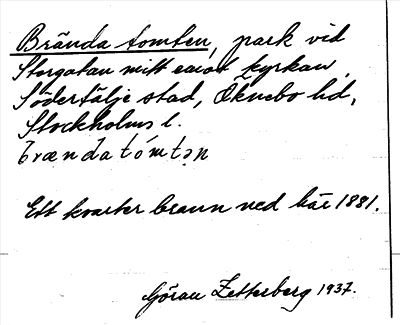 Brända tomten, park vid
Storgatan mitt emot kyrkan,
Södertälje stad, Öknebo hd,
Stockholms l.
brændatómtən
Ett kvarter brann ned här 1881.
Göran Zetterberg 1937.